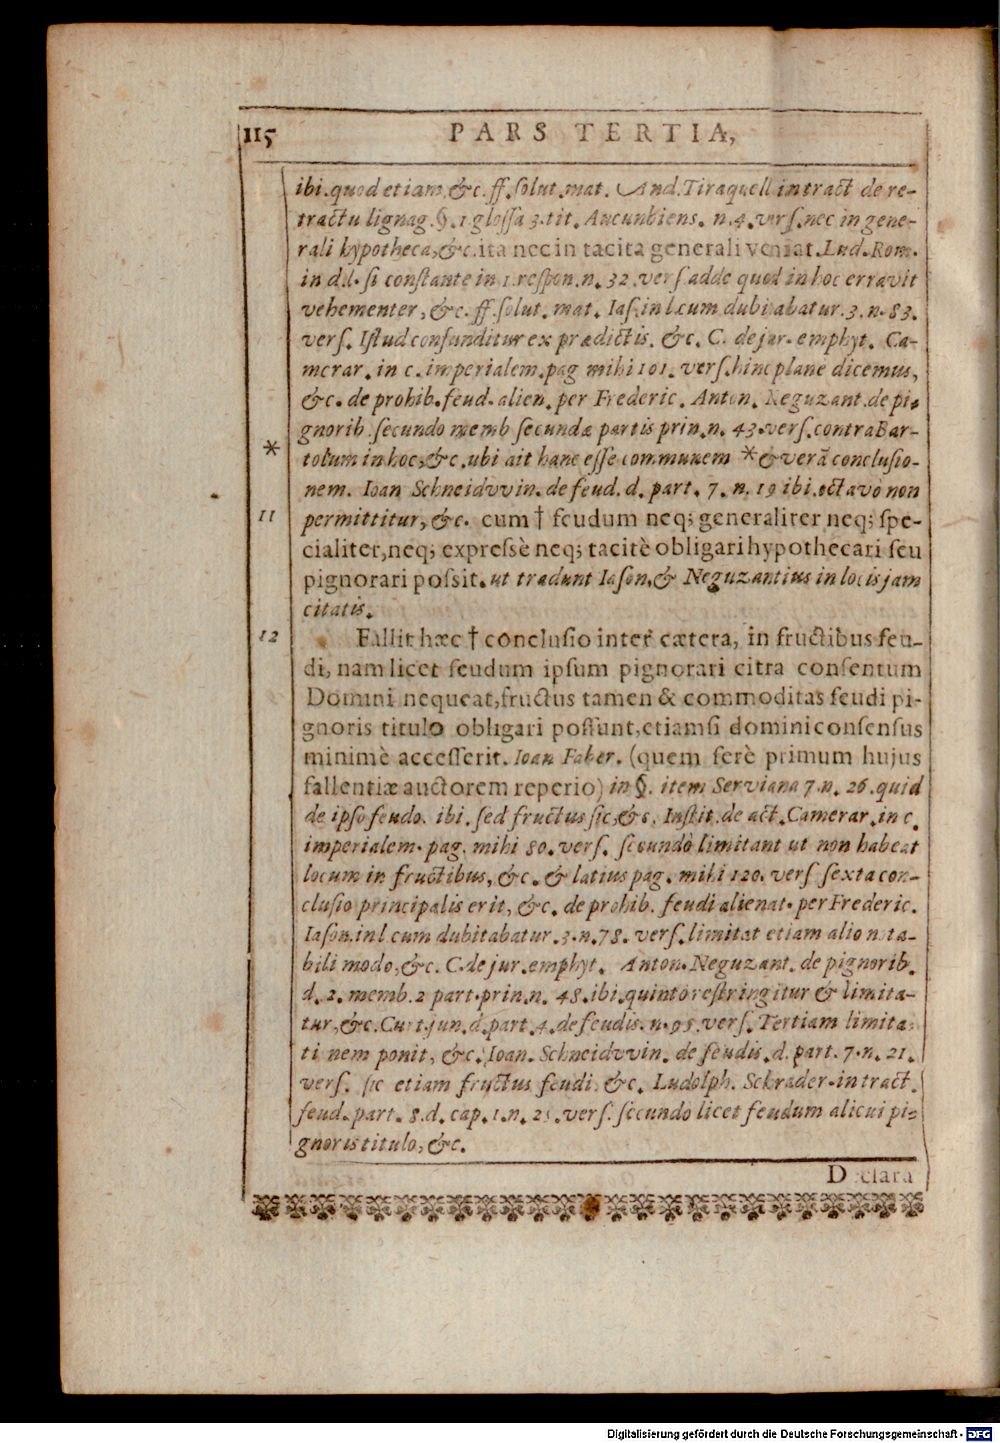 115 PARS TERTIA,
ibi. quod etiam, &c. ff. solut. mat. And. Tiraquell in tract de re-
tractu lignag. §. 1 glossa 3. tit. Aucunbiens. n. 4. vers. nec in gene-
rali hypotheca, &c. ita nec in tacita generali veniat. Lud. Rom.
in d.l. si constante in 1. respon. n. 32. vers adde quod in hoc erravit
vehementer, &c. ff. solut. mat. Ias. in l. cum dubitabatur. 3. n. 83.
vers. Istud confunditur ex prædictis. &c. C. de jur. emphyt. Ca-
merar. in c. imperialem. pag mihi 101. vers. hinc plane dicemus,
&c. de prohib. feud. alien. per Frederic. Anton. Neguzant. de pi-
gnorib secundo memb secundæ partis prin. n. 43. vers. contra Bar-
* tolum in hoc, &c. ubi ait hanc esse communem * & verā conclusio-
nem. Ioan Schneidvvin. de feud. d. part. 7. n. 19 ibi. octavo non
11 permittitur, &c. cum † feudum neq; generaliter neq; spe-
cialiter, neq; expressè neq; tacitè obligari hypothecari seu
pignorari possit. ut tradunt Iason, & Neguzantius in locis jam
citatis.
12 Fallit hæc † conclusio inter cætera, in fructibus feu-
di, nam licet feudum ipsum pignorari citra consentum
Domini nequeat, fructus tamen & commoditas feudi pi-
gnoris titulo obligari possunt, etiamsi domini consensus
minimè accesserit. Ioan Faber. (quem ferè primum hujus
fallentiæ auctorem reperio) in §. item Serviana 7. n. 26. quid
de ipso feudo. ibi. sed fructus sic, &c. Instit. de act. Camerar. in c.
imperialem. pag. mihi 80. vers. secundò limitant ut non habeat
locum in fructibus, &c. & latius pag. mihi 120. vers sexta con-
clusio principalis erit, &c. de prohib. feudi alienat. per Frederic.
Iason. in l cum dubitabatur. 3. n. 78. vers. limitat etiam alio nota-
bili modo, &c. C. de jur. emphyt. Anton. Neguzant. de pignorib.
d. 2. memb. 2 part. prin. n. 48. ibi. quintò restringitur & limita-
tur, &c. Curt. jun. d. part. 4. de feudis. n. 95. vers. Tertiam limita-
ti nem ponit, &c. Ioan. Schneidvvin. de feudis. d. part. 7. n. 21.
vers. sic etiam fructus feudi. &c. Ludolph. Schrader. in tract.
feud. part. 8. d. cap. 1. n. 25. vers. secundo licet feudum alicui pi-
gnoris titulo, &c.
Declara
Digitalisierung gefördert durch die Deutsche Forschungsgemeinschaft - DFG